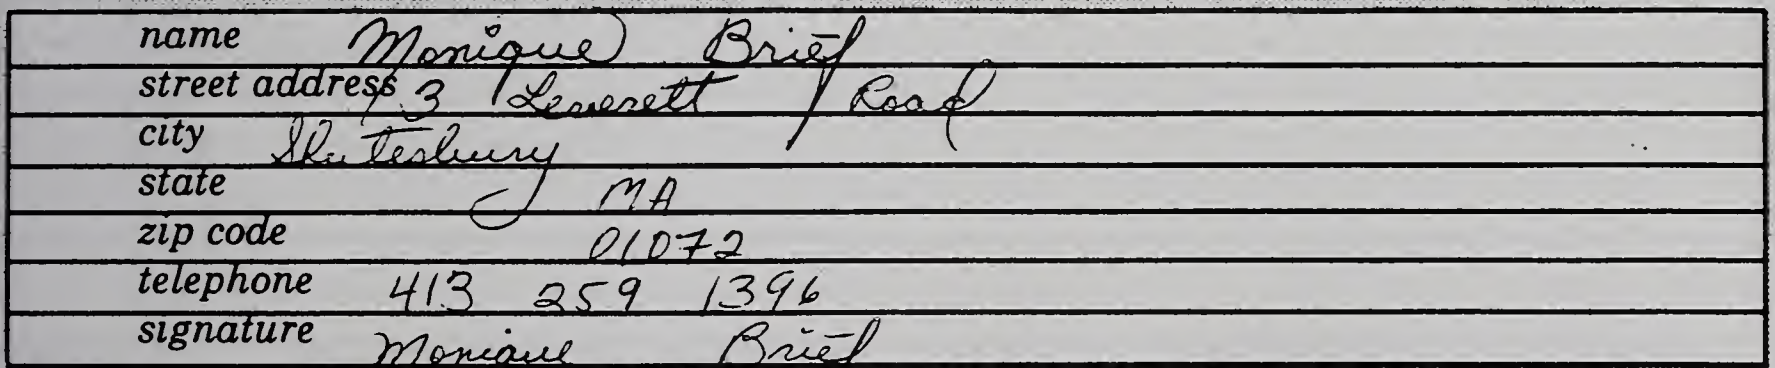 name Monique Briēf
street address 73 Leverett Road
city Shutesbury
state MA
zip code 01072
telephone 413 259 1396
signature Monique Briēf